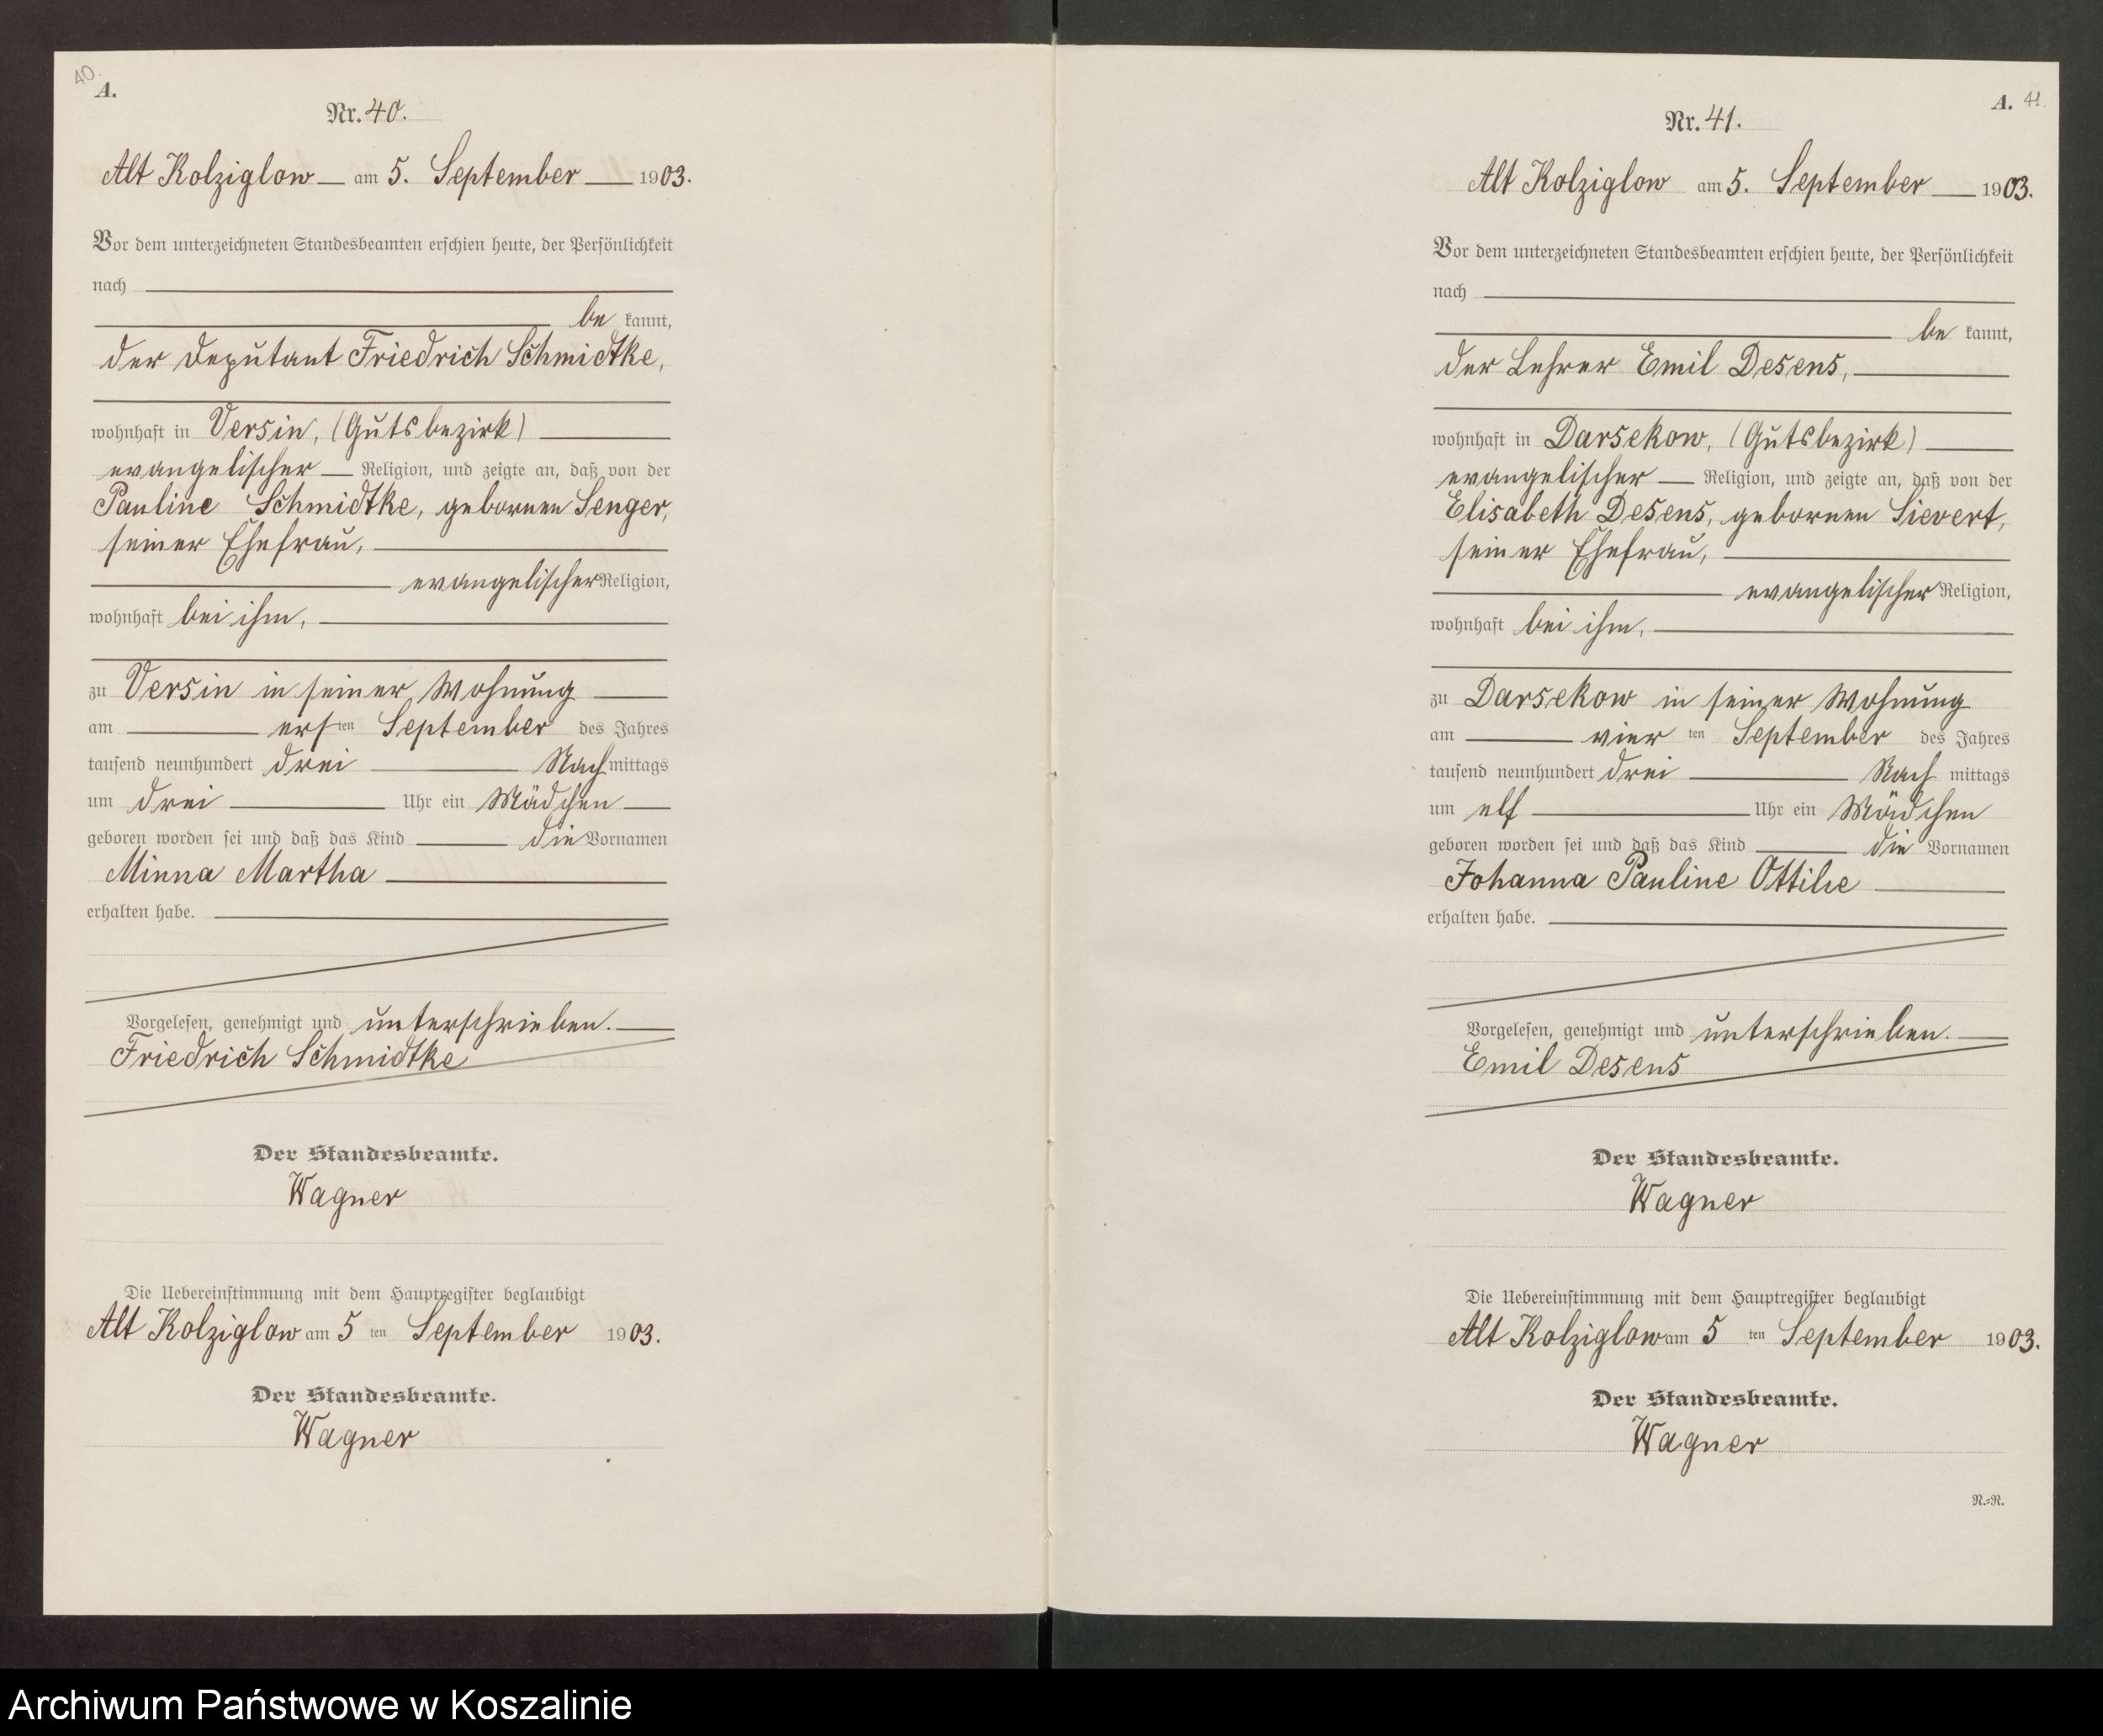 40.
A.
Nr. 40.
Alt Kolziglow am 5. September 1903.
Vor dem unterzeichneten Standesbeamten erschien heute, der Persönlichkeit
nach
be kannt,
der Deputant Friedrich Schmidtke,
wohnhaft in Versin, (Gutsbezirk)
evangelischer Religion, und zeigte an, daß von der
Pauline Schmidtke, gebornen Senger,
seiner Ehefrau,
evangelischer Religion,
wohnhaft bei ihm,
zu Versin in seiner Wohnung
am ersten September des Jahres
tausend neunhundert drei Nachmittags
um drei Uhr ein Mädchen
geboren worden sei und daß das Kind die Vornamen
Minna Martha
erhalten habe.
Vorgelesen, genehmigt und unterschrieben.
Friedrich Schmidtke
Der Standesbeamte.
Wagner
Die Uebereinstimmung mit dem Hauptregister beglaubigt
Alt Kolziglow am 5 ten September 1903.
Der Standesbeamte.
Wagner
A. 41.
Nr. 41.
Alt Kolziglow am 5. September 1903.
Vor dem unterzeichneten Standesbeamten erschien heute, der Persönlichkeit
nach
be kannt,
der Lehrer Emil Desens,
wohnhaft in Darsekow, (Gutsbezirk)
evangelischer Religion, und zeigte an, daß von der
Elisabeth Desens, gebornen Sievert,
seiner Ehefrau,
evangelischer Religion,
wohnhaft bei ihm,
zu Darsekow in seiner Wohnung
am vier ten September des Jahres
tausend neunhundert drei Nach mittags
um elf Uhr ein Mädchen
geboren worden sei und daß das Kind die Vornamen
Johanna Pauline Ottilie
erhalten habe.
Vorgelesen, genehmigt und unterschrieben.
Emil Desens
Der Standesbeamte.
Wagner
Die Uebereinstimmung mit dem Hauptregister beglaubigt
Alt Kolziglow am 5 ten September 1903.
Der Standesbeamte.
Wagner
N.=R.
Archiwum Państwowe w Koszalinie